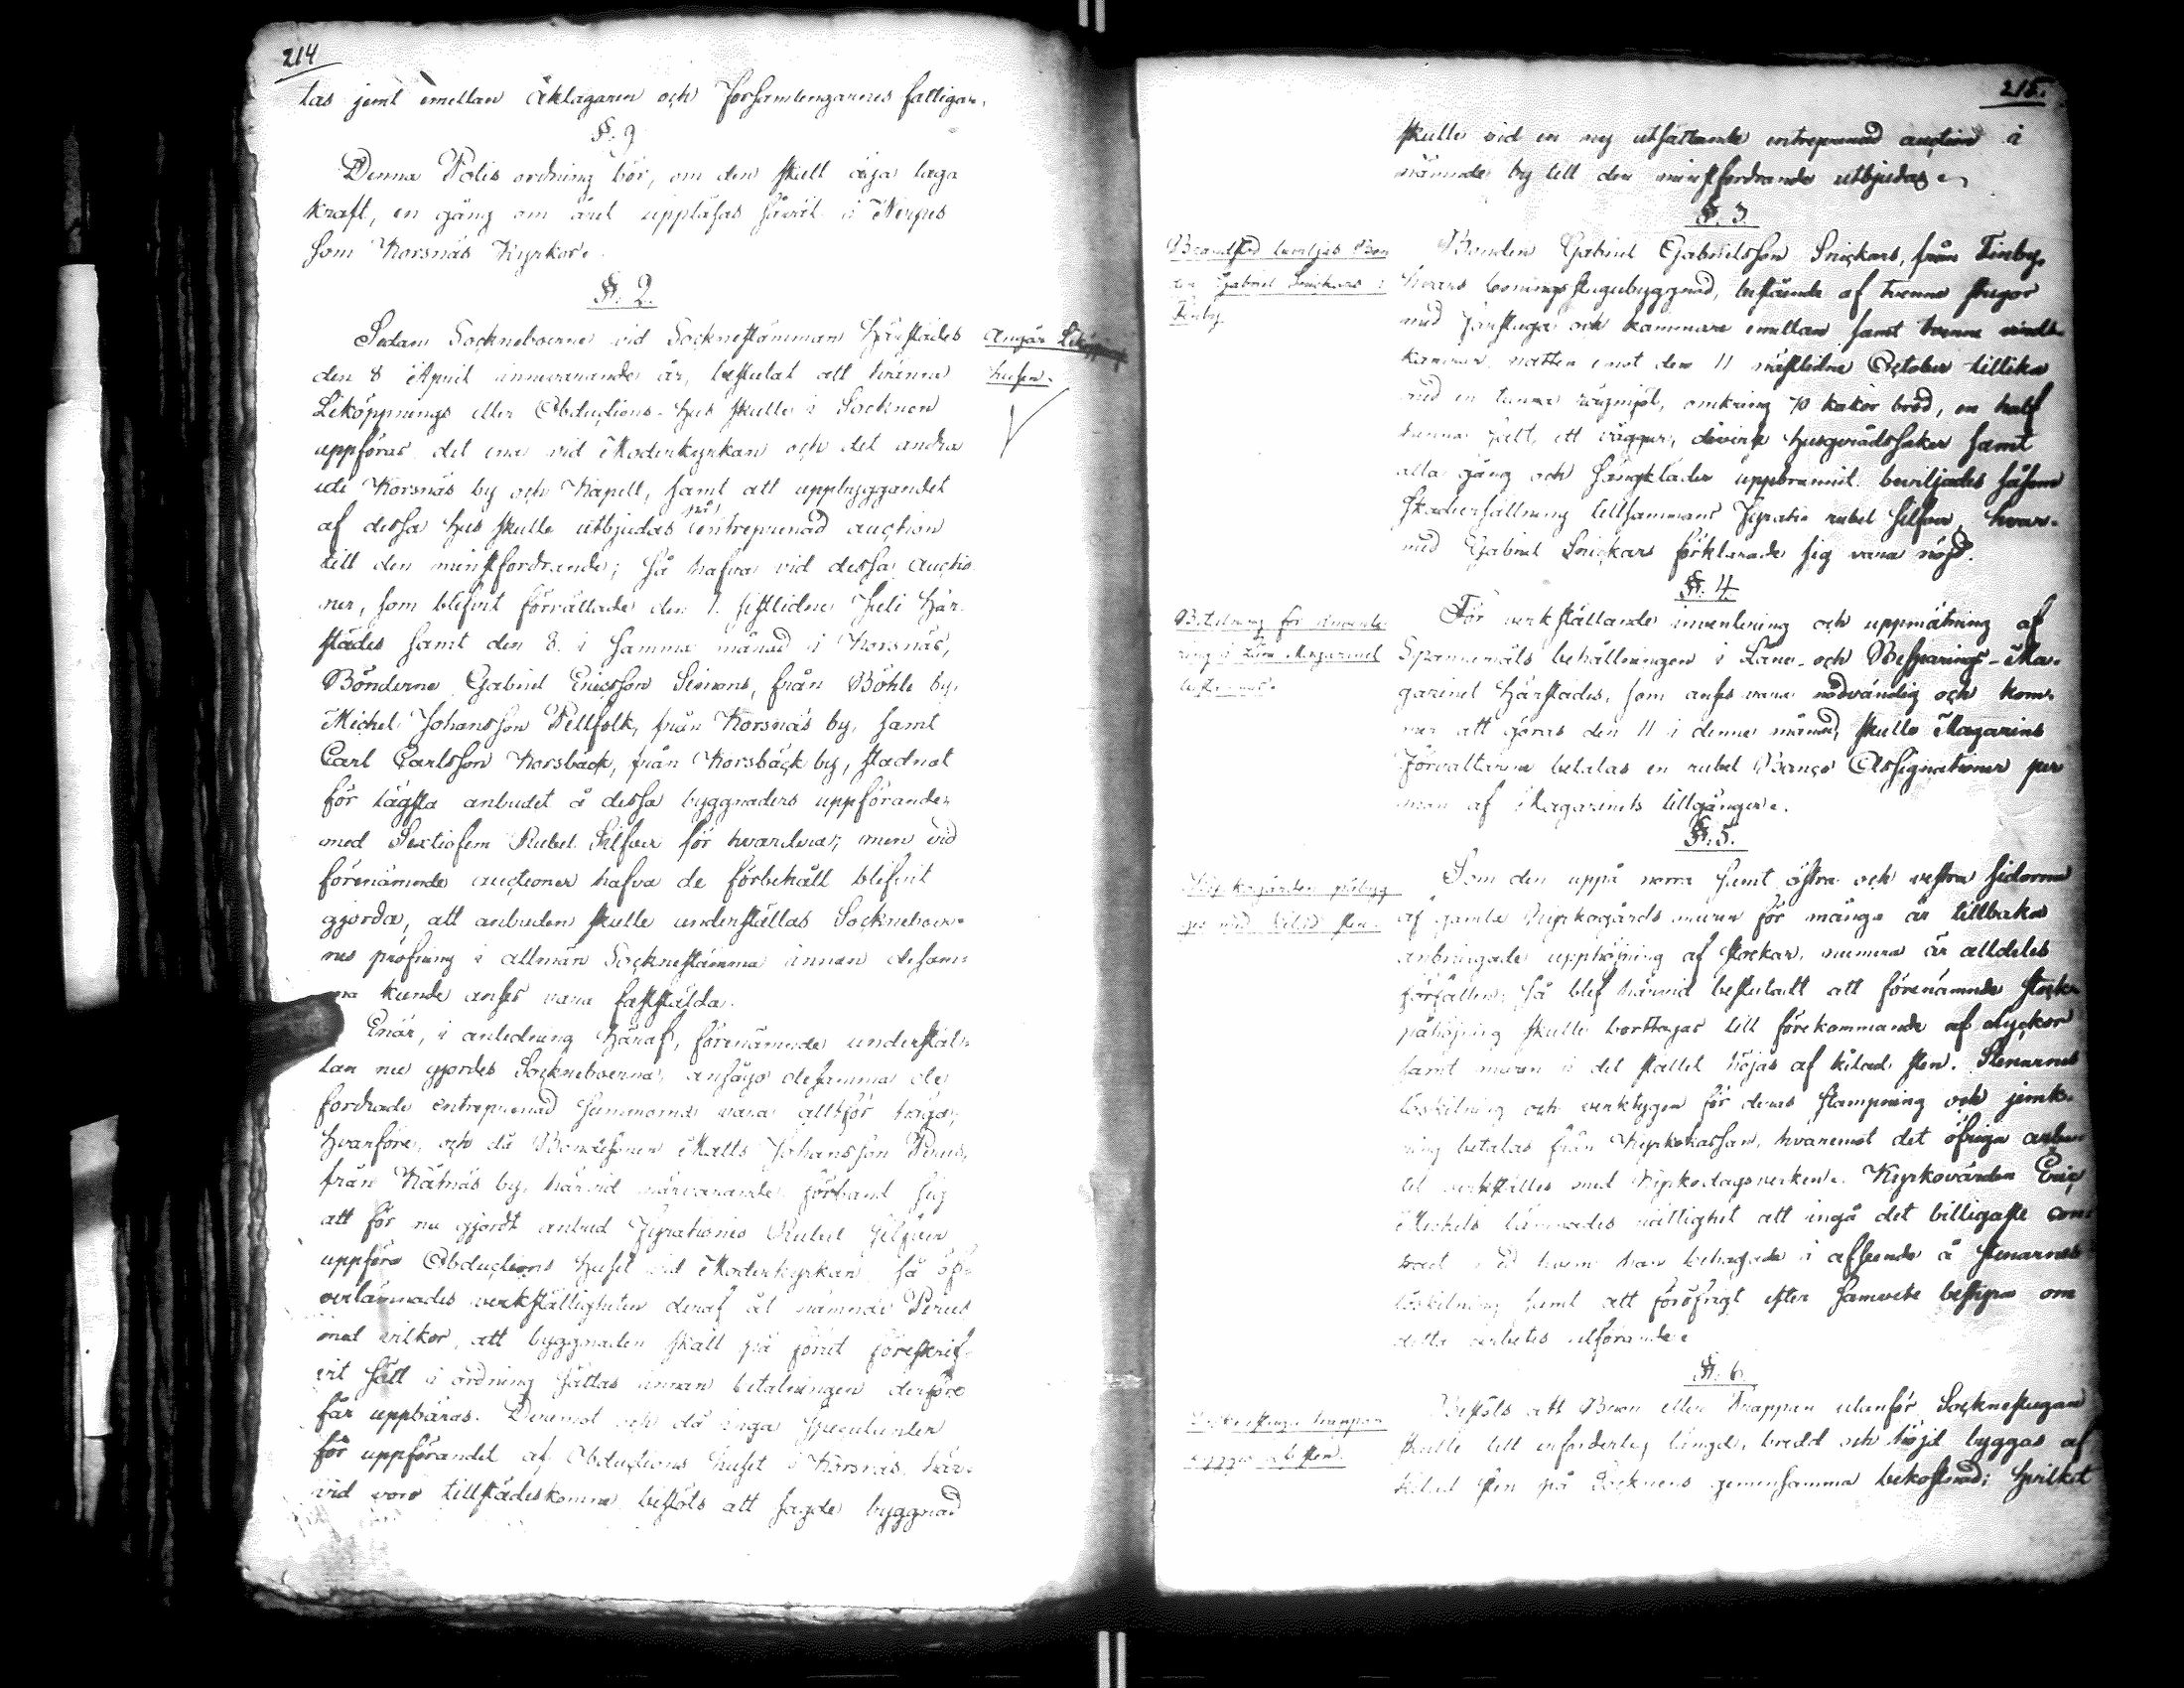 214
tas jemt emellan åklagaren och Församlingarnes fattiga.
§. 9
Denna Polis ordning bör, om den skall äga laga
kraft, en gång om året uppläsas såväl i Nerpes
som Korsnäs Kyrkor.
§. 2.
Sedan Sockneboerne vid Socknestämman härstädes
den 8 April innevarande år, beslutat att tvänne
Liköppnings eller Obductions-hus skulle i Socknen
uppföras det ena vid Moderkyrkan och det andra
uti Korsnäs by och Kapell, samt att uppbyggandet
af dessa hus skulle utbjudas på entreprenad auction
till den minstfordrande; så hafva vid dessa auctio
ner, som blifvit förrättade den 7. sistlidne Juli här
städes samt den 8. i samma månad i Korsnäs,
Bönderne Gabriel Ericsson Simons, från Böhle by,
Michel Johansson Pellfolk, från Korsnäs by, samt
Carl Carlsson Korsbäck, från Korsbäck by, stadnat
för lägsta anbudet å dessa byggnaders uppförande
med Sextiofem Rubel Silfver för hvardera; men vid
förenämnde auctioner hafva de förbehåll blifvit
gjorda, att anbuden skulle underställas Socknebor-
nes pröfning i allmän Sockenstämma innan desam-
ma kunde anses vara fastställda.
Enär, i anledning häraf, förenämnde underställ-
lan nu gjordes Socknboerna, ansågo desamma de
fordrade entreprenad summorna vara alltför höga,
hvarföre, och då Bondesonen Matts Johansson Perus,
från Nätnäs by, härvid närvarande förband sig
att för nu gjordt anbud Fyrationio Rubel Silfver
uppföra Obductions huset vid Moderkyrkan så öf-
verlämnades verkställigheten deraf åt nämnde Perus
med vilkor, att byggnaden skall på förut föreskrif-
vit sätt i ordning sättas innan betalningen derföre
får uppbäras. Deremot och då inga speculanter
för uppförandet af Obductions huset i Korsnäs här-
vid voro tillstädeskomne beslöts att sagde byggnad
Angår Liköppnings
husen.
215.
skulle vid en ny utsättande entreprenad auction i
nämnde by till den minstfordrande utbjudas.
§. 3.
Brandstod beviljas Bon
den Gabriel Snickars i
Finby
Bonden Gabriel Gabrielsson Snickars, från Finby,
hvars boningsstugubyggnad, bestående af tvenne stugor
med förstuga och kammare emellan samt tvenne vinds
kamrar, natten emot den 11 sistlidne October tillika
med en tunna rågmjöl, omkring 70 kakor bröd, en half
tunna salt, ett väggur, diverse husgerådssaker samt
alla gång och sängkläder uppbrunnit beviljades såsom
skadeersättning tillsammans Fyratio rubel silfver, hvar-
med Gabriel Snickars förklarade sig vara nöjd.
§. 4.
Betalning för invente-
ring i Låne Magazinet
bestämmes.
För verkställande inventering och uppmätning af
Spannemåls behållningen i Låne- och Besparings-Ma-
gazinet härstädes, som anses vara nödvändig och kom-
mer att göras den 11 i denne månad, skulle Magazins
Förvaltarne betalas en rubel Banco Assignationer per
man af Magazinets tillgångar.
§. 5.
Kyrkogården påbyg
ges med kilad sten.
Som den uppå norra samt östra och vestra sidorna
af gamla Kyrkogårds muren för många år tillbaka
anbringade upphöjning af stockar, numera är alldeles
förfallen; så blef härvid beslutadt att förenämnde stock-
påhöjning skulle borttagas till förekommande af olyckor
samt muren i det stället höjas af kilad sten. Stenarnes
löskilning och verktygen för deras stampning och jemk-
ning betalas från Kyrkokassan, hvaremot det öfriga arbe-
tet verkställes med Kyrkodagsverken. Kyrkovärden Eric
Michels lämnades rättighet att ingå det billigaste con-
tract med hvem han behagade i afseende å stenarnes
löskilning samt att föröfrigt efter samvete bestyra om
detta arbetes utförande.
§. 6.
Socknestugu trappan
bygges af sten.
Beslöts att Bron eller Trappan utanför Socknestugan
skulle till erforderlig längd, bredd och höjd byggas af
kilad sten på Socknens gemensamma bekostnad; hvilket